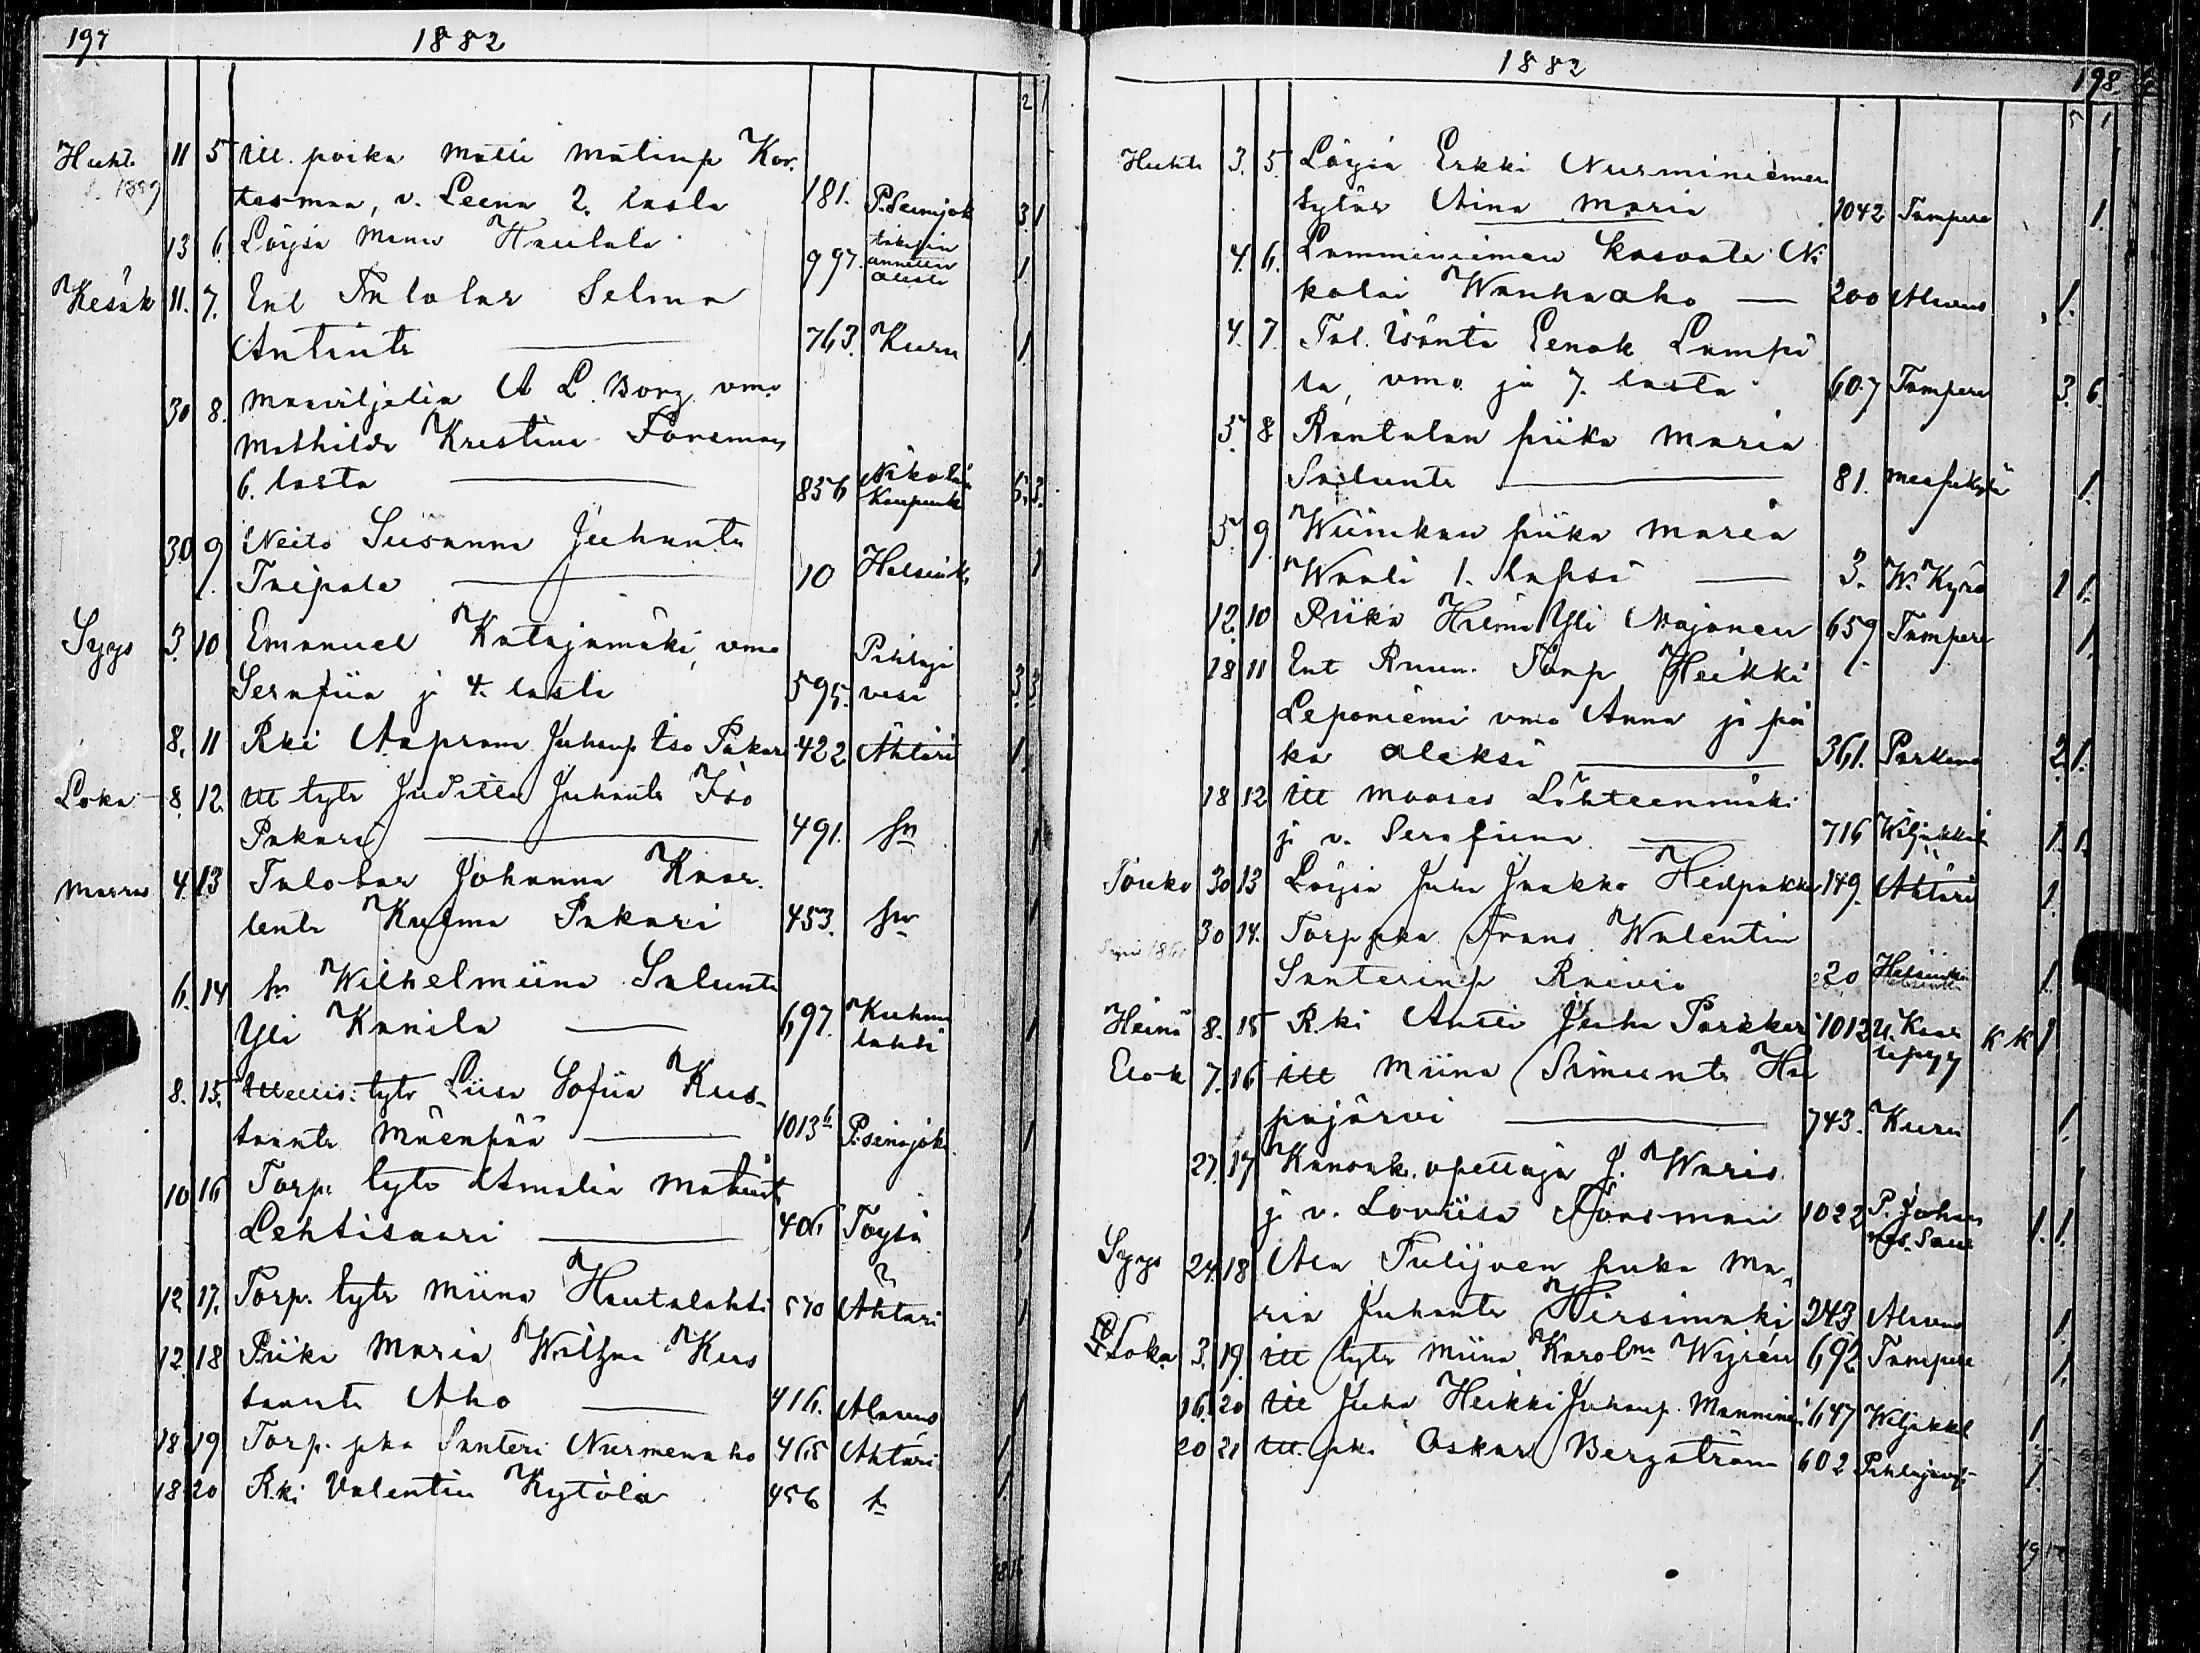 197 1882
2 1
Huht. 11 5 Itl. poika Matti Matinp. Kor-
1889 tesmaa, v. Leena 2. lasta 181. P. Seinäjok 3 1
13 6. Löysä Manu Hautala 997. takasin annettu 1
Kesäk 11. 7. Ent Talolar Selma
Antint. 763. Kuru 1.
30 8. Maaviljeliä A L. Borg vmo
Mathilda Kristina Forsman
6. lasta 836 Nikolai Kaupunki 5. 3.
30 9 Neito Susanna Juhant.
Taipale 10 Helsink. 1
Syys 3. 10 Emanuel Katajamäki, vmo
Serafiia j 4. lasta 595. Pihlaja vesi 3. 3.
8. 11 Rki Aapram Juhanp Iso Pakari 422 Ähtäri 1.
Loka 8. 12. Itl tytr Juditha Juhant. Iso
Pakari 491. sm 1
Marras 4. 13 Talolar Johanna Kaar-
lent. Kujma Pakari 453. sm 1
6. 14 sm Wilhelmiina Salunt.
Yli Kanila 697. Kuhma lahti 1
8. 15. tytr Liisa Sofiia Kus-
taant. Mäenpää 1013 b P. seinäjok. 1
10. 16 Torp. tytr Amalia Matint.
Lehtisaari 406 Töysä 1
12. 17. Torp. tytr Miina Hautalahti 570 Ähtäri 1
12. 18 Piika Maria Wilhma Kus
taant. Aho 416. Alavus 1
18 19 Torp. pka Santeri Nurmenaho 465 Ähtäri 1
18 20 R.ki Valentin Kytölä 456 sm 1.
18 15
1882 198.
5 1
Huhti 3. 5. Löysä Erkki Nurminiemen
tytär Aina Maria 1042 Tampere 1.
4. 6. Lamminniemen kasvatti Ni
kolai Wanhaaho 200 Alavus 1.
4. 7. Tal. Isäntä Eenok Lampi
la, vmo ja 7. lasta 607 Tampere 3. 6.
5. 8 Rantalan piika Maria
Salunt. 81. 1.
5. 9. Wiinikan piika Maria
Waali 1. lapsi 3. W. Kyrö 1 1.
12. 10 Piika Hilma Yli Majanen 659 Tampere 1.
18 11 Ent Ruun. Torp Heikki
Leponiemi vmo Anna ja poi
ka Aleksi 361. Parkano 2. 1.
18 12 Itl Mooses Lähteenmäki
j v. Serafiina 716 Wiljakkal 1. 1.
Touko 30 13 Löysä Juha Jaakko Hedpakka 149. Ähtäri 1.
30 14. Torp pka Frans Walentin
Santerinp Raivio 220 Helsinki 1.
Heinä 8. 15 R.ki Antti Juha Parkkari 1013 U. Kaar lepyy K K 1
Elok 7. 16 Itl Miina Simunt. Haa
pajärvi 743. Kuru 1.
27. 17 Kansak. opettaja J. Waris
j v. Loviisa Forsman 1022 P. Johan nes. Saar 1. 1.
Syys 24. 18 Ala Tulijoen piika Ma-
ria Juhant. Hirsimäki 243 Alavus 1.
Loka 3. 19. Itl tytr Miina Karolna Wigren 692 Tampere 1.
16. 20 Itl Juha Heikki Juhanp. Manninen 647 Wiljakkal 1.
20 21 Itl. pk. Oskar Bergström 602 Pihlajavesi 1.
19 12